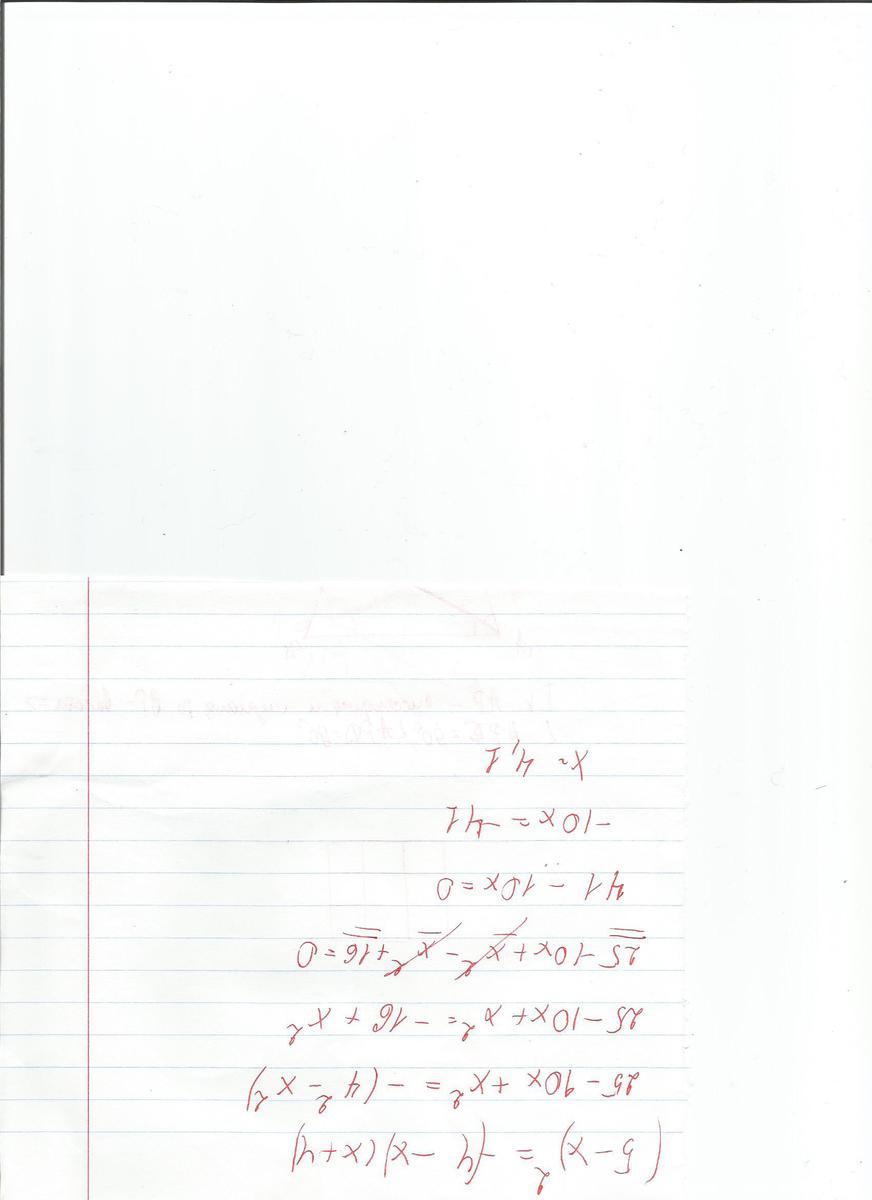 (5-x)² = -(4-x)(x+4)
25-10x+x² = -(4²-x²)
25-10x+x² = -16+x²
25-10x+x²-x²+16=0
41-10x=0
-10x=-41
x=4,1